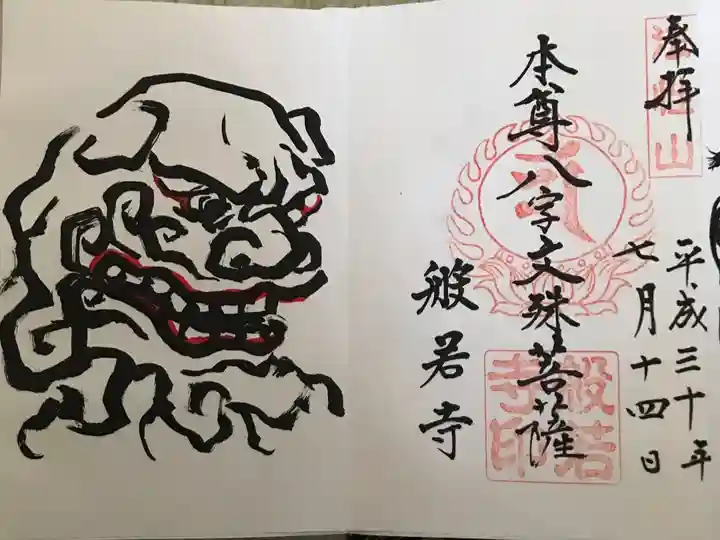 奉拝
平成三十年
七月十四日
本尊八字文殊菩薩
般若寺
般若寺印